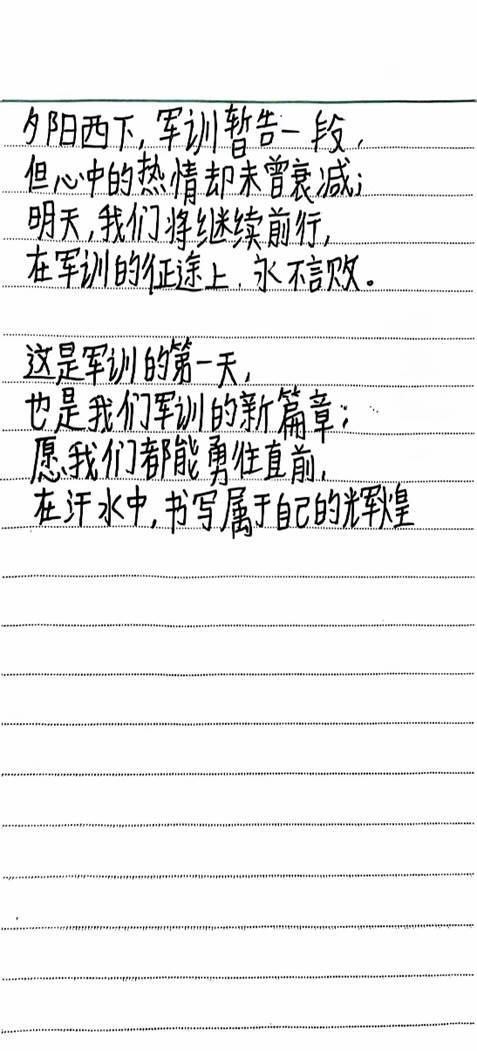 夕阳西下,军训暂告一段,
但心中的热情却未曾衰减;
明天,我们将继续前行,
在军训的征途上,永不言败。
这是军训的第一天,
也是我们军训的新篇章;
愿我们都能勇往直前,
在汗水中,书写属于自己的辉煌